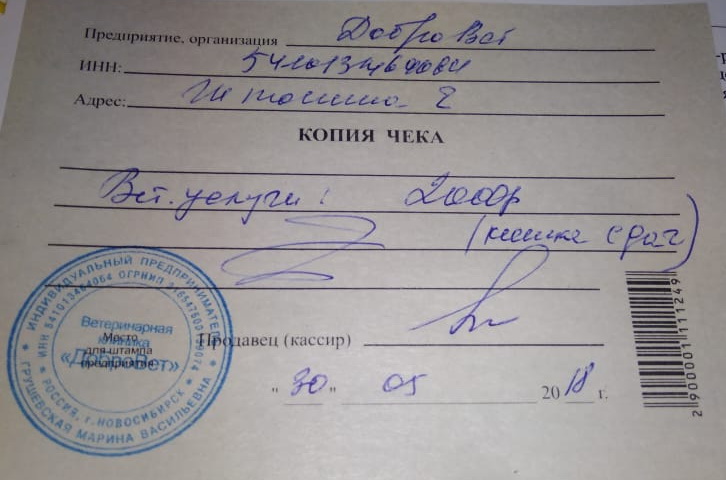 Предприятие, организация ДоброВет
ИНН: 541013464064
Адрес:
КОПИЯ ЧЕКА
Вет. услуги: 2000р
(кошка
Продавец (кассир)
"30" 05 2018 г.
ИНДИВИДУАЛЬНЫЙ ПРЕДПРИНИМАТЕЛЬ
ИНН 541013464064 ОГРНИП
Ветеринарная
клиника
«ДоброВет»
Место
для штампа
предприятия
РОССИЯ, г. НОВОСИБИРСК
ГРУШЕВСКАЯ МАРИНА ВАСИЛЬЕВНА
2900001111249